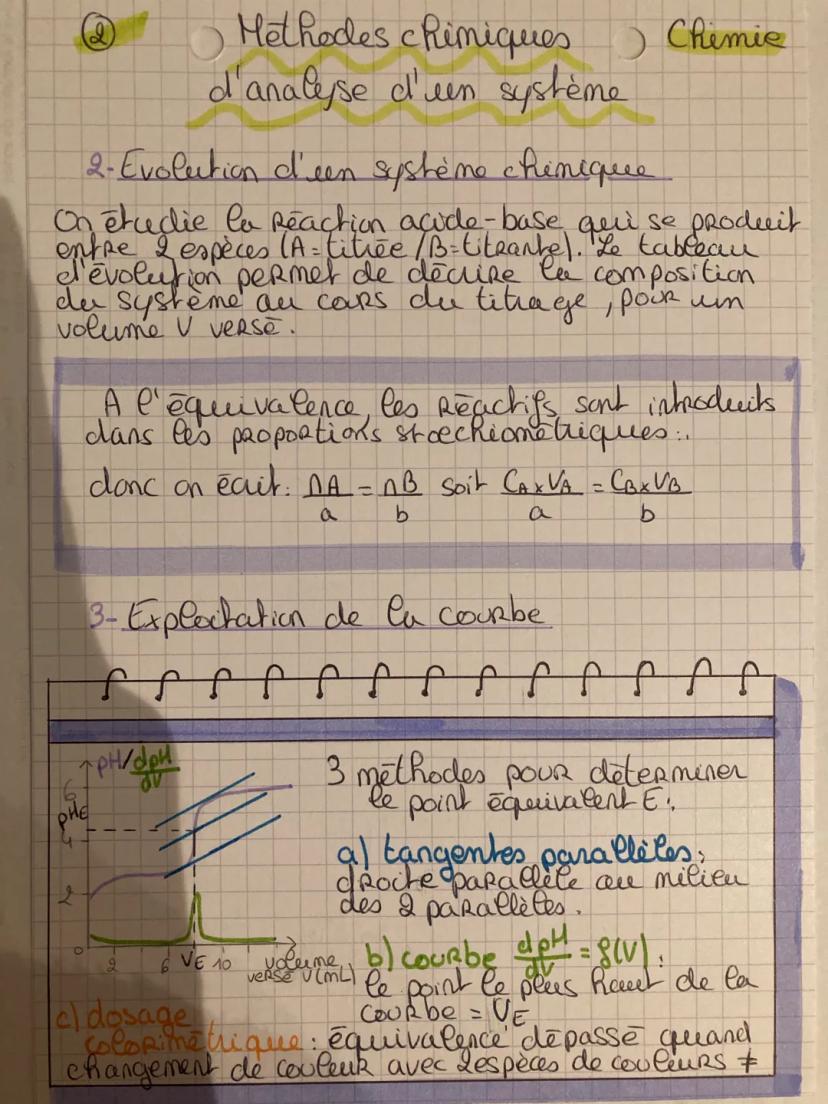 ② Méthodes chimiques Chimie
d'analyse d'un système
2- Evolution d'un système chimique
On étudie la réaction acide-base qui se produit
entre 2 espèces (A = titrée / B = titrante). Le tableau
d'évolution permet de décrire la composition
du système au cours du titrage, pour un
volume V versé.
A l'équivalence, les réactifs sont introduits
dans les proportions stoechiométriques :
donc on écrit : nA/a = nB/b soit CA×VA/a = CB×VB/b
3- Exploitation de la courbe
pH/dpH/dV
6
pHE
4
2
0
2 6 VE 10 volume
versé V(mL)
3 méthodes pour déterminer
le point équivalent E :
a) tangentes parallèles :
droite parallèle au milieu
des 2 parallèles.
b) courbe dpH/dV = f(V) :
le point le plus haut de la
courbe = VE
c) dosage
colorimétrique : équivalence dépassé quand
changement de couleur avec 2 espèces de couleurs ≠